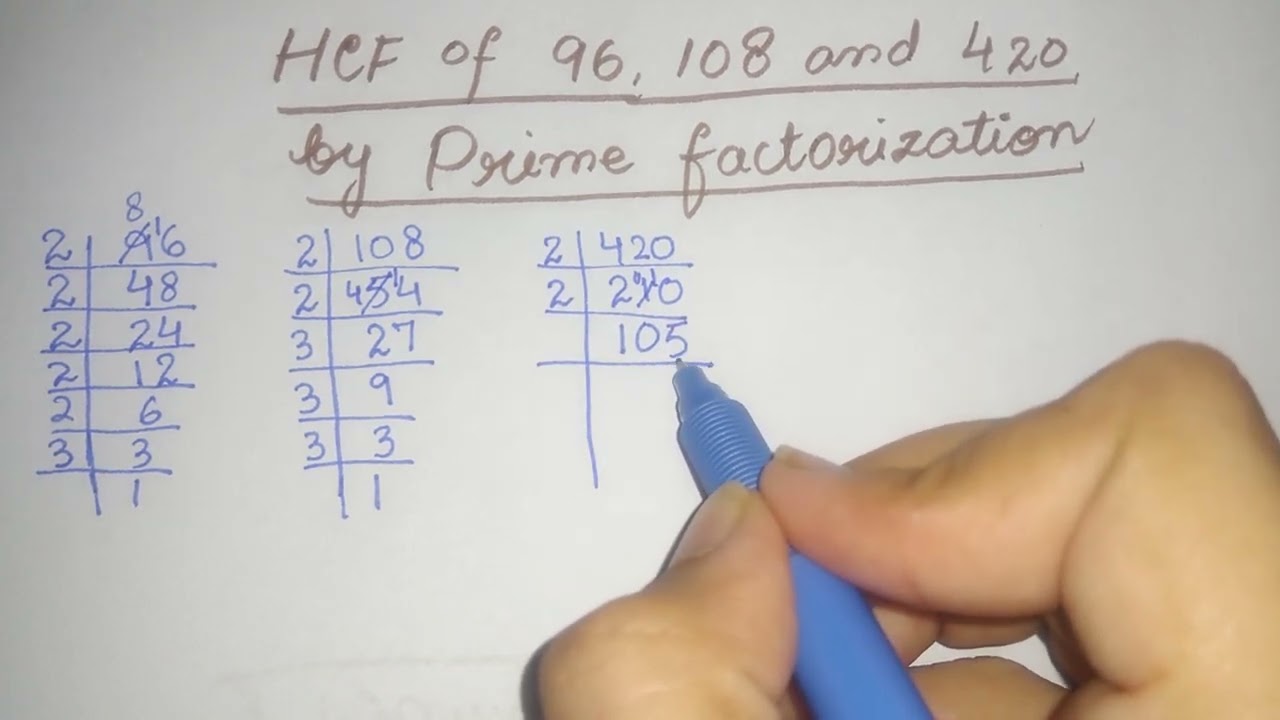 HCF of 96, 108 and 420
by Prime factorization
8
2 | 9 16
2 | 48
2 | 24
2 | 12
2 | 6
3 | 3
1
2 | 108
2 | 4 5 14
3 | 27
3 | 9
3 | 3
1
2 | 420
2 | 2 0 1 1 0
105